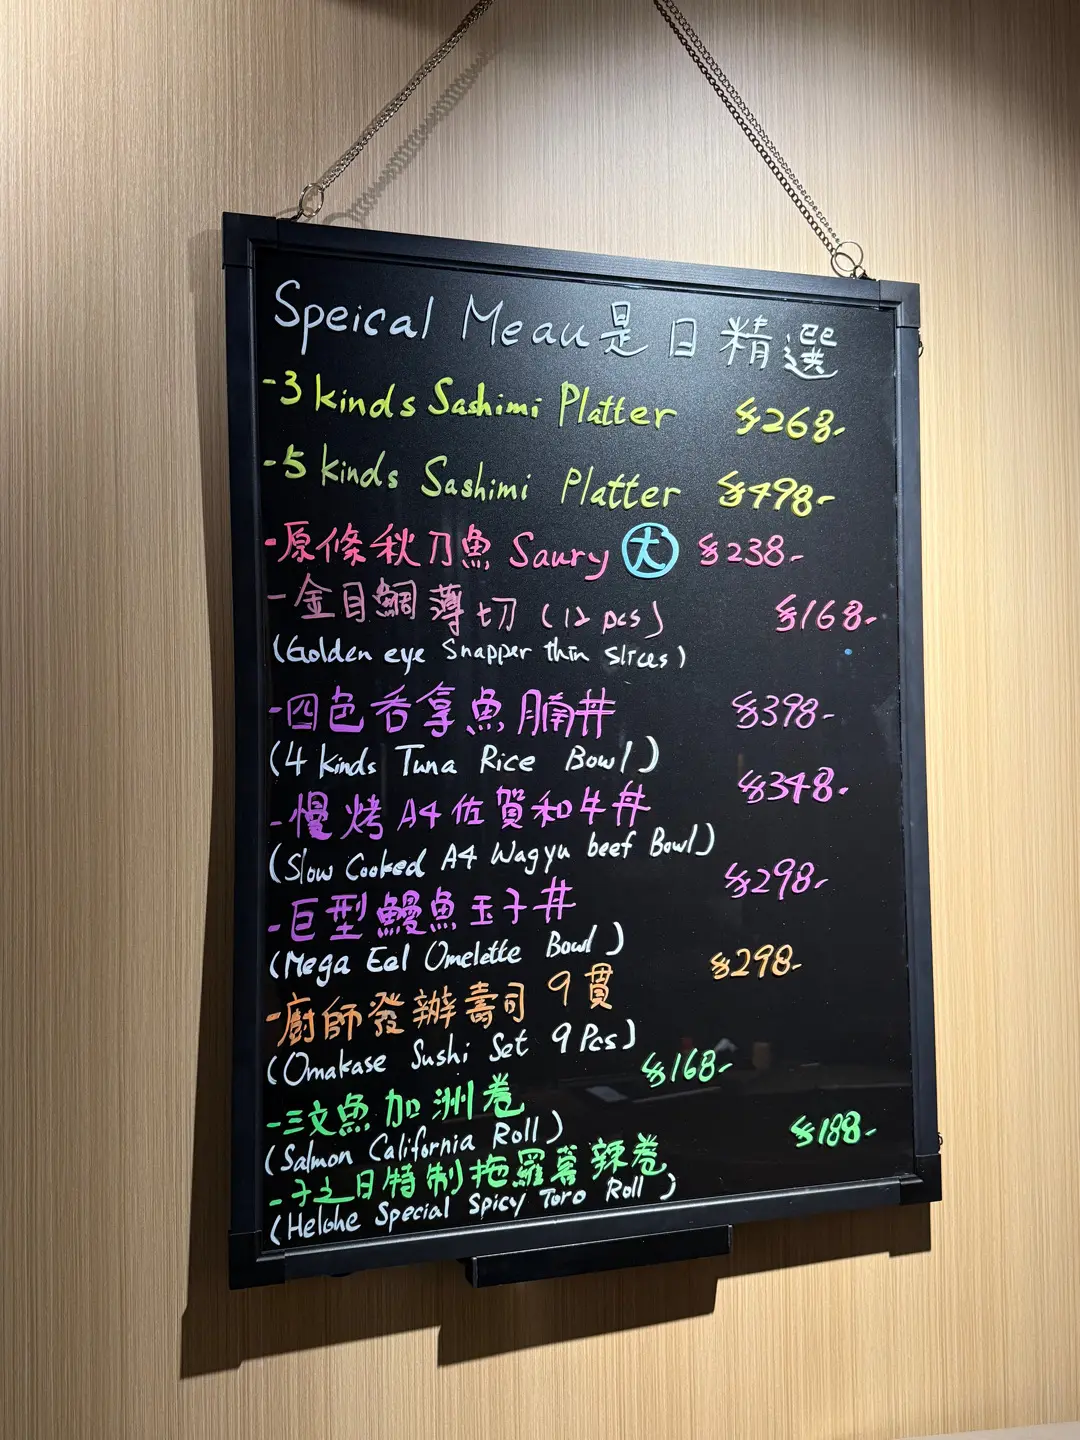 Speical Meau 是日精選
-3 kinds Sashimi Platter $268-
-5 kinds Sashimi Platter $498-
-原條秋刀魚 Saury 大 $238-
-金目鯛薄切 (12 pcs) $168-
(Golden eye Snapper thin slices)
-四色吞拿魚腩丼 $398-
(4 kinds Tuna Rice Bowl)
-慢烤A4佐賀和牛丼 $348-
(Slow Cooked A4 Wagyu beef Bowl)
-巨型鰻魚玉子丼 $298-
(Mega Eel Omelette Bowl)
-廚師發辦壽司 9貫 $298-
(Omakase Sushi Set 9 Pcs)
-三文魚加洲卷 $168-
(Salmon California Roll)
-子之日特制拖羅蓉辣卷 $188-
(Helohe Special Spicy Toro Roll)